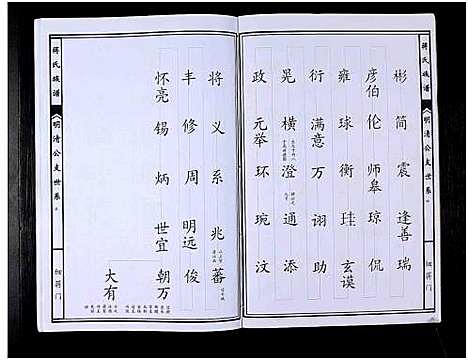 蒋氏族谱
《明清公支世系》
细蒋门
彬 简 震 逢善 瑞
彦伯 伦 师皋 琼 侃
雍 球 衡 珪 玄谟
衍 满意 万 诩 助
晃 横 澄 通 添
政 元举 环 琬 汶
将 义 系 兆 蕃
丰 修 周 明远 俊
怀亮 锡 炳 世宜 朝万
大有
蒋氏族谱
《明清公支世系》
细蒋门